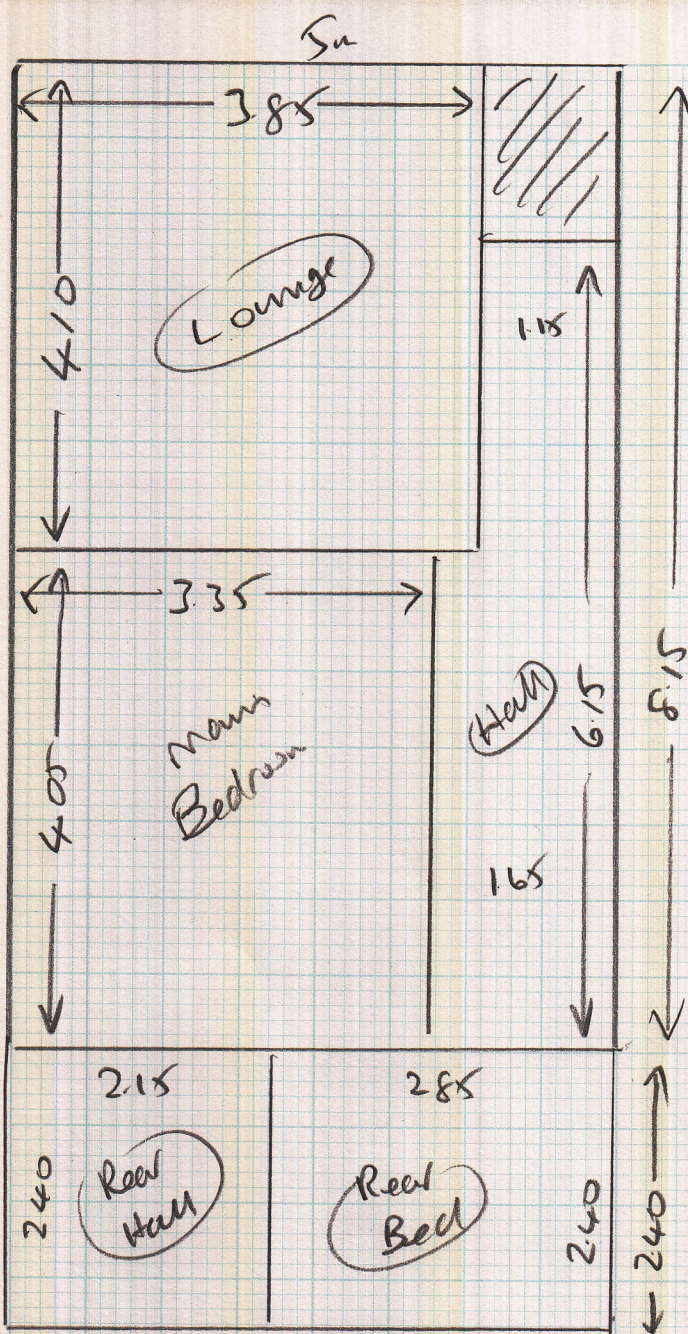 5m
3.85
4.10
Lounge
1.15
3.35
Main
Bedroom
4.05
Hall
6.15
8.15
1.65
2.15
2.85
2.40
Rear
Hall
Rear
Bed
2.40
2.40